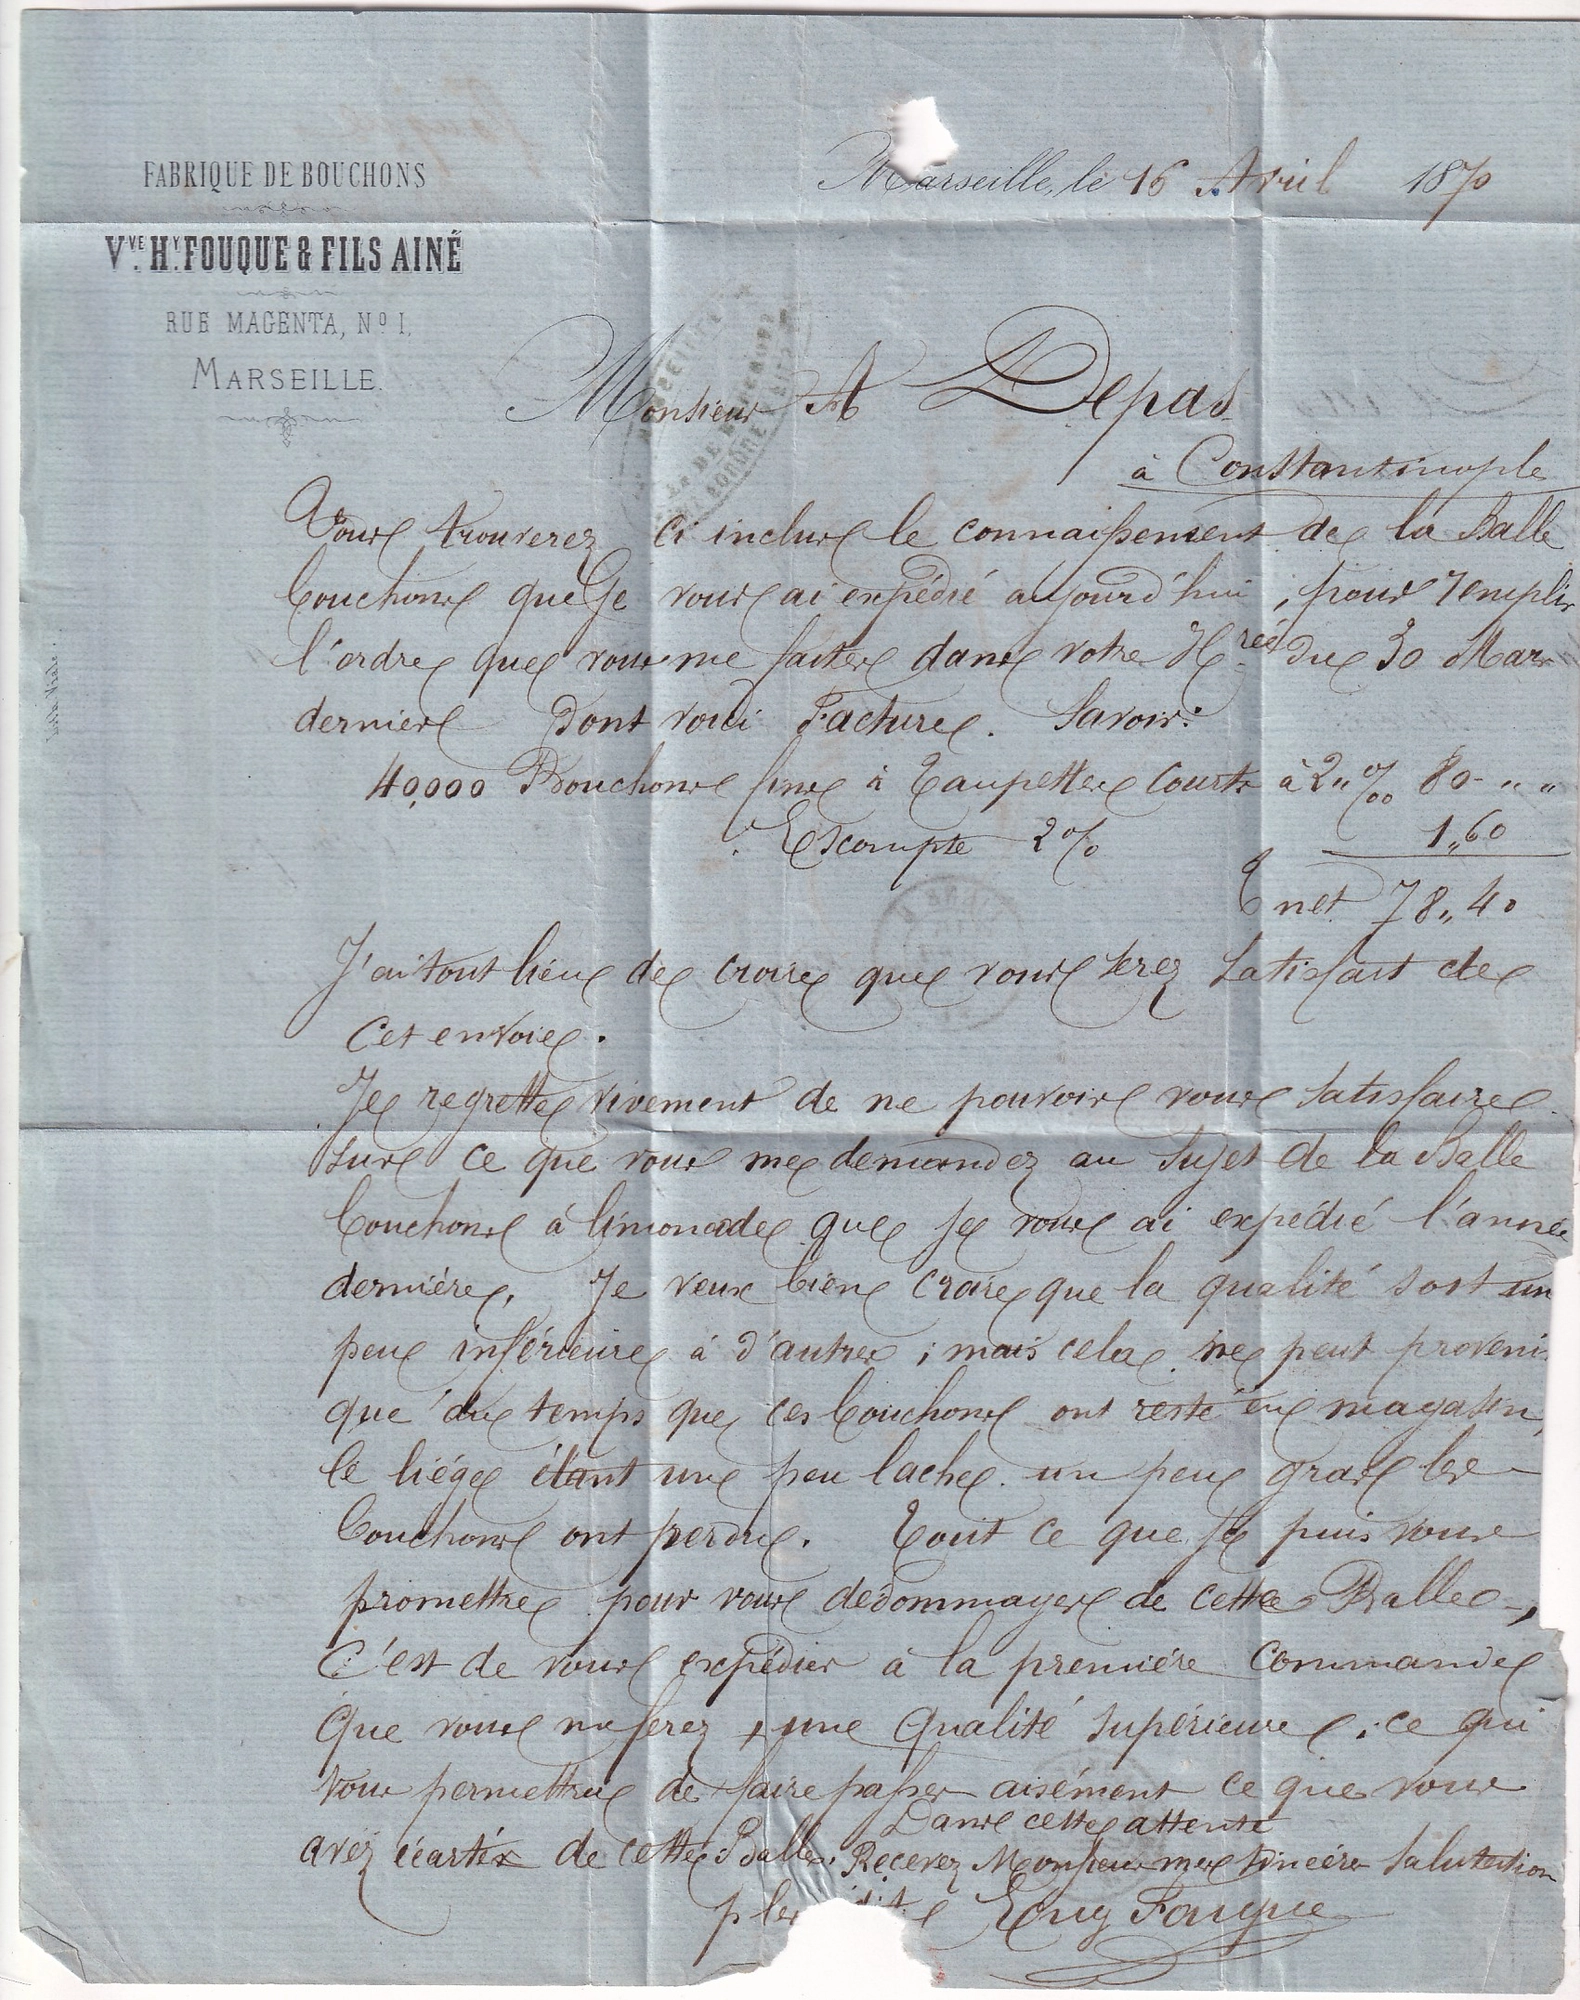 FABRIQUE DE BOUCHONS
Vve Hy FOUQUE & FILS AINÉ
RUE MAGENTA, No 1.
MARSEILLE.
Marseille, le 16 Avril 1870
Monsieur A Depas
à Constantinople
Vous trouverez ci inclus le connaissement de la Balle
bouchons que Je vous ai expédié aujourd'hui, pour remplir
l'ordre que vous me faites dans votre Hrée du 30 Mars
dernier dont voici Facture. Savoir:
40,000 Bouchons fins à Taupettes Courts à 2 " ‰ 80 - " "
Escompte 2 % 1,,60
T net 78,,40
J'ai tout lieu de croire que vous serez satisfait de
cet envoie.
Je regrette vivement de ne pouvoir vous satisfaire
sur ce que vous me demandez au sujet de la Balle
bouchons à limonade que je vous ai expédié l'année
dernière. Je veux bien croire que la qualité soit un
peu inférieure à d'autres ; mais cela ne peut provenir
que du temps que ces bouchons ont resté en magasin,
le liége étant un peu lache un peu gras les
bouchons ont perdu. Tout ce que je puis vous
promettre pour vous dédommager de cette Balle -,
C'est de vous expédier à la première commande
que vous me ferez, une qualité supérieure ; ce qui
vous permettra de faire passer aisément ce que vous
avez écartér de cette Balle. Dans cette attente
Recevez Monsieur mes sincères salutation
p les Eug Fouque